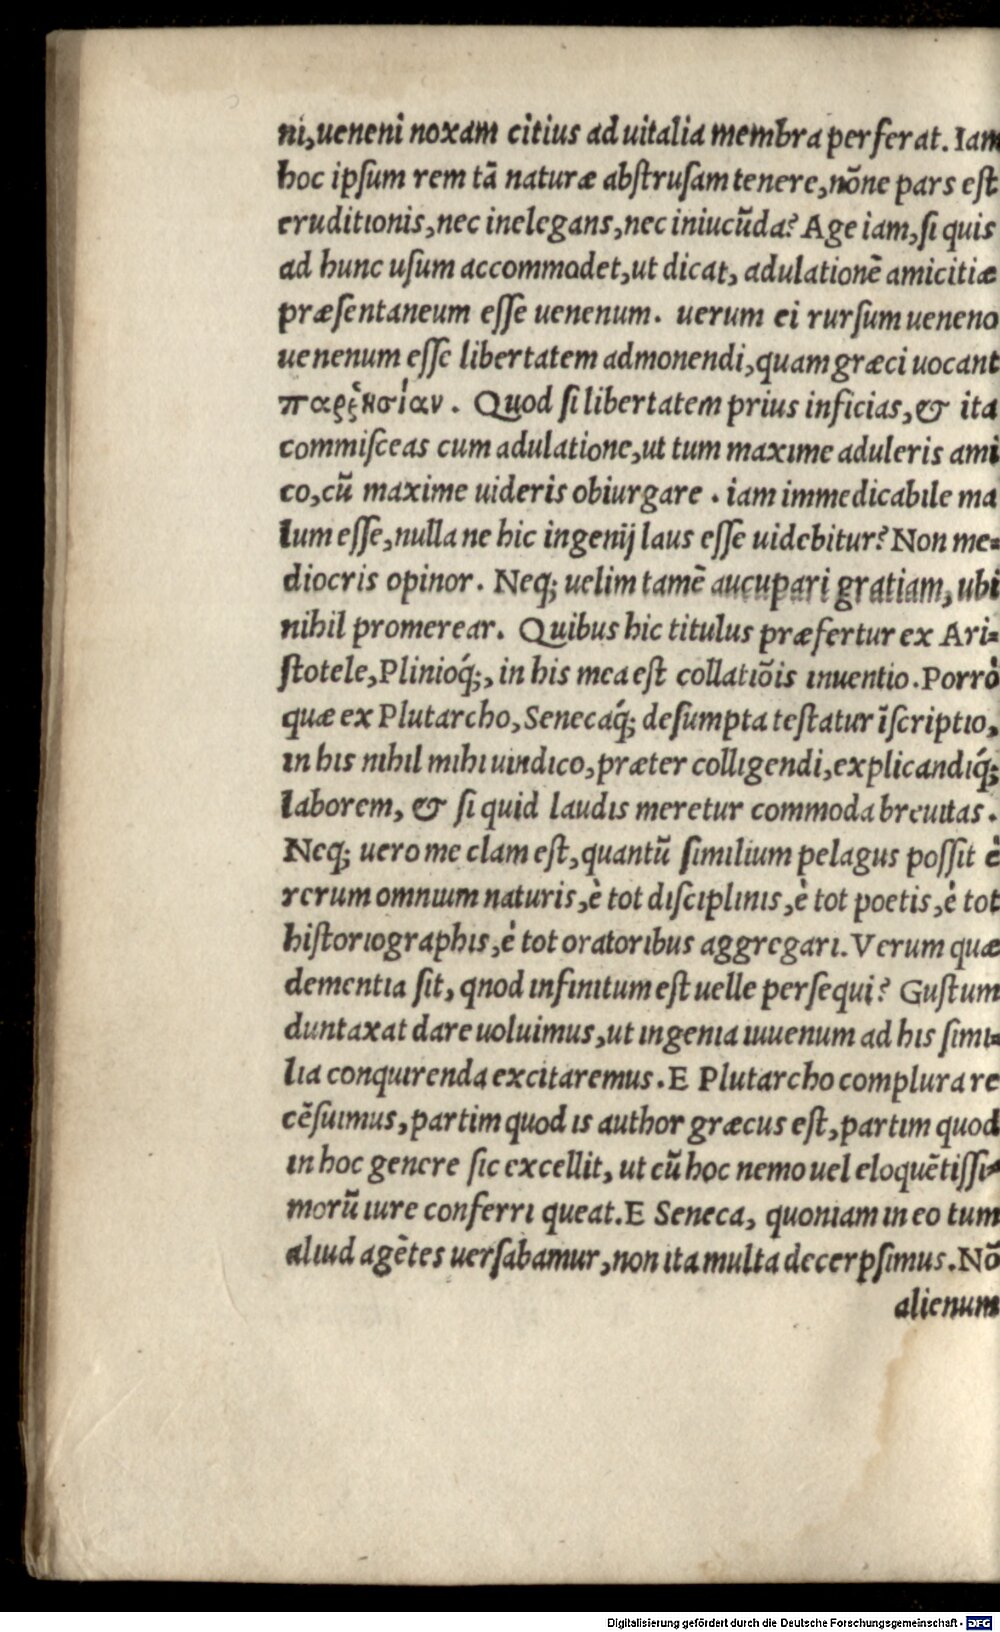 ni, ueneni noxam citius ad uitalia membra perferat. Iam
hoc ipſum rem tā naturæ abſtruſam tenere, nōne pars eſt
eruditionis, nec inelegans, nec iniucūda? Age iam, ſi quis
ad hunc uſum accommodet, ut dicat, adulationē amicitiæ
præſentaneum eſſe uenenum. uerum ei rurſum ueneno
uenenum eſſe libertatem admonendi, quam græci uocant
παῤῥησίαν. Quod ſi libertatem prius inficias, & ita
commiſceas cum adulatione, ut tum maxime aduleris ami
co, cū maxime uideris obiurgare. iam immedicabile ma
lum eſſe, nulla ne hic ingenij laus eſſe uidebitur? Non me=
diocris opinor. Neq; uelim tamē aucupari gratiam, ubi
nihil promerear. Quibus hic titulus præfertur ex Ari=
ſtotele, Plinioq́;, in his mea eſt collatiōis inuentio. Porrò
quæ ex Plutarcho, Senecaq́; deſumpta teſtatur īſcriptio,
in his nihil mihi uindico, præter colligendi, explicandiq́;
laborem, & ſi quid laudis meretur commoda breuitas.
Neq; uero me clam eſt, quantū ſimilium pelagus poſſit è
rerum omnium naturis, è tot diſciplinis, è tot poetis, è tot
hiſtoriographis, è tot oratoribus aggregari. Verum quæ
dementia ſit, qnod infinitum eſt uelle perſequi? Guſtum
duntaxat dare uoluimus, ut ingenia iuuenum ad his ſimi=
lia conquirenda excitaremus. E Plutarcho complura re
cēſuimus, partim quod is author græcus eſt, partim quod
in hoc genere ſic excellit, ut cū hoc nemo uel eloquētiſſi=
morū iure conferri queat. E Seneca, quoniam in eo tum
aliud agētes uerſabamur, non ita multa decerpſimus. Nō
alienum
Digitalisierung gefördert durch die Deutsche Forschungsgemeinschaft - DFG